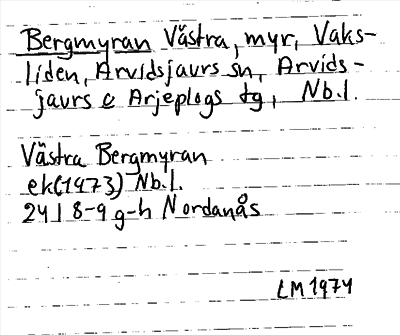 Bergmyran Västra, myr, Vaks-
liden, Arvidsjaurs sn, Arvids-
jaurs o Arjeplogs tg, Nb.l.
Västra Bergmyran
ek(1973) Nb.l.
24 I 8-9 g-h Nordanås
LM 1974